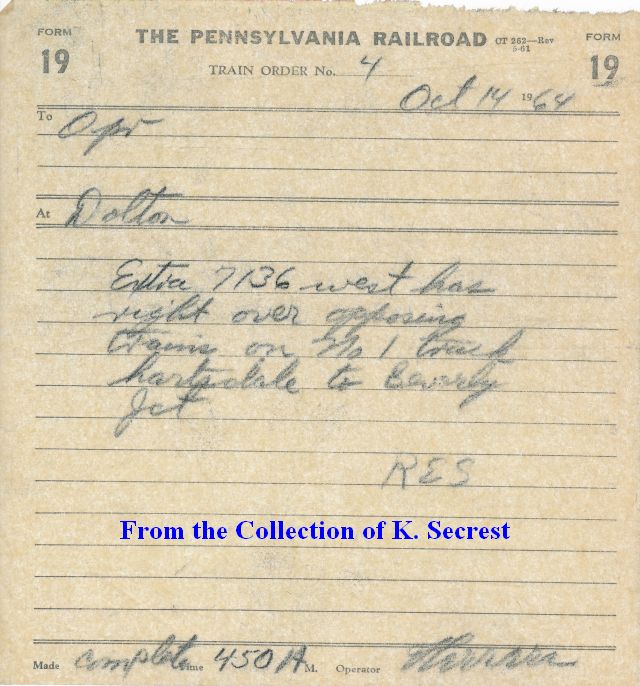 FORM 19
THE PENNSYLVANIA RAILROAD
CT 262—Rev 5-61
FORM 19
TRAIN ORDER No. 4
Oct 14 1964
To Opr
At Dolton
Extra 7136 west has
right over opposing
trains on No 1 track
hartsdale to Beverly
Jct
RES
From the Collection of K. Secrest
Made complete Time 450 A M. Operator